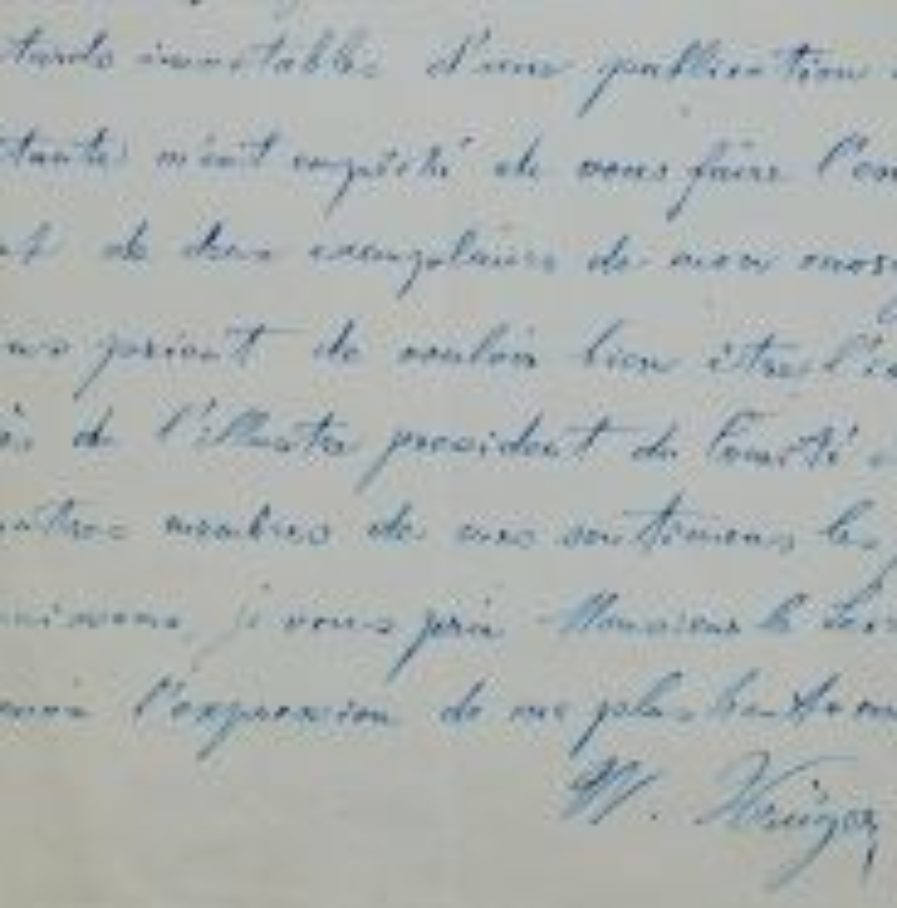 tards inévitables d'une publication
tante) m'ont empêché de vous faire l'en
de deux exemplaires de mon
priant de vouloir bien être l'in
de l'illustre president du Comité
autres membres de mes sentimens les
je vous prie Monsieur le
l'expression de mes plus hautes
W. Krüger